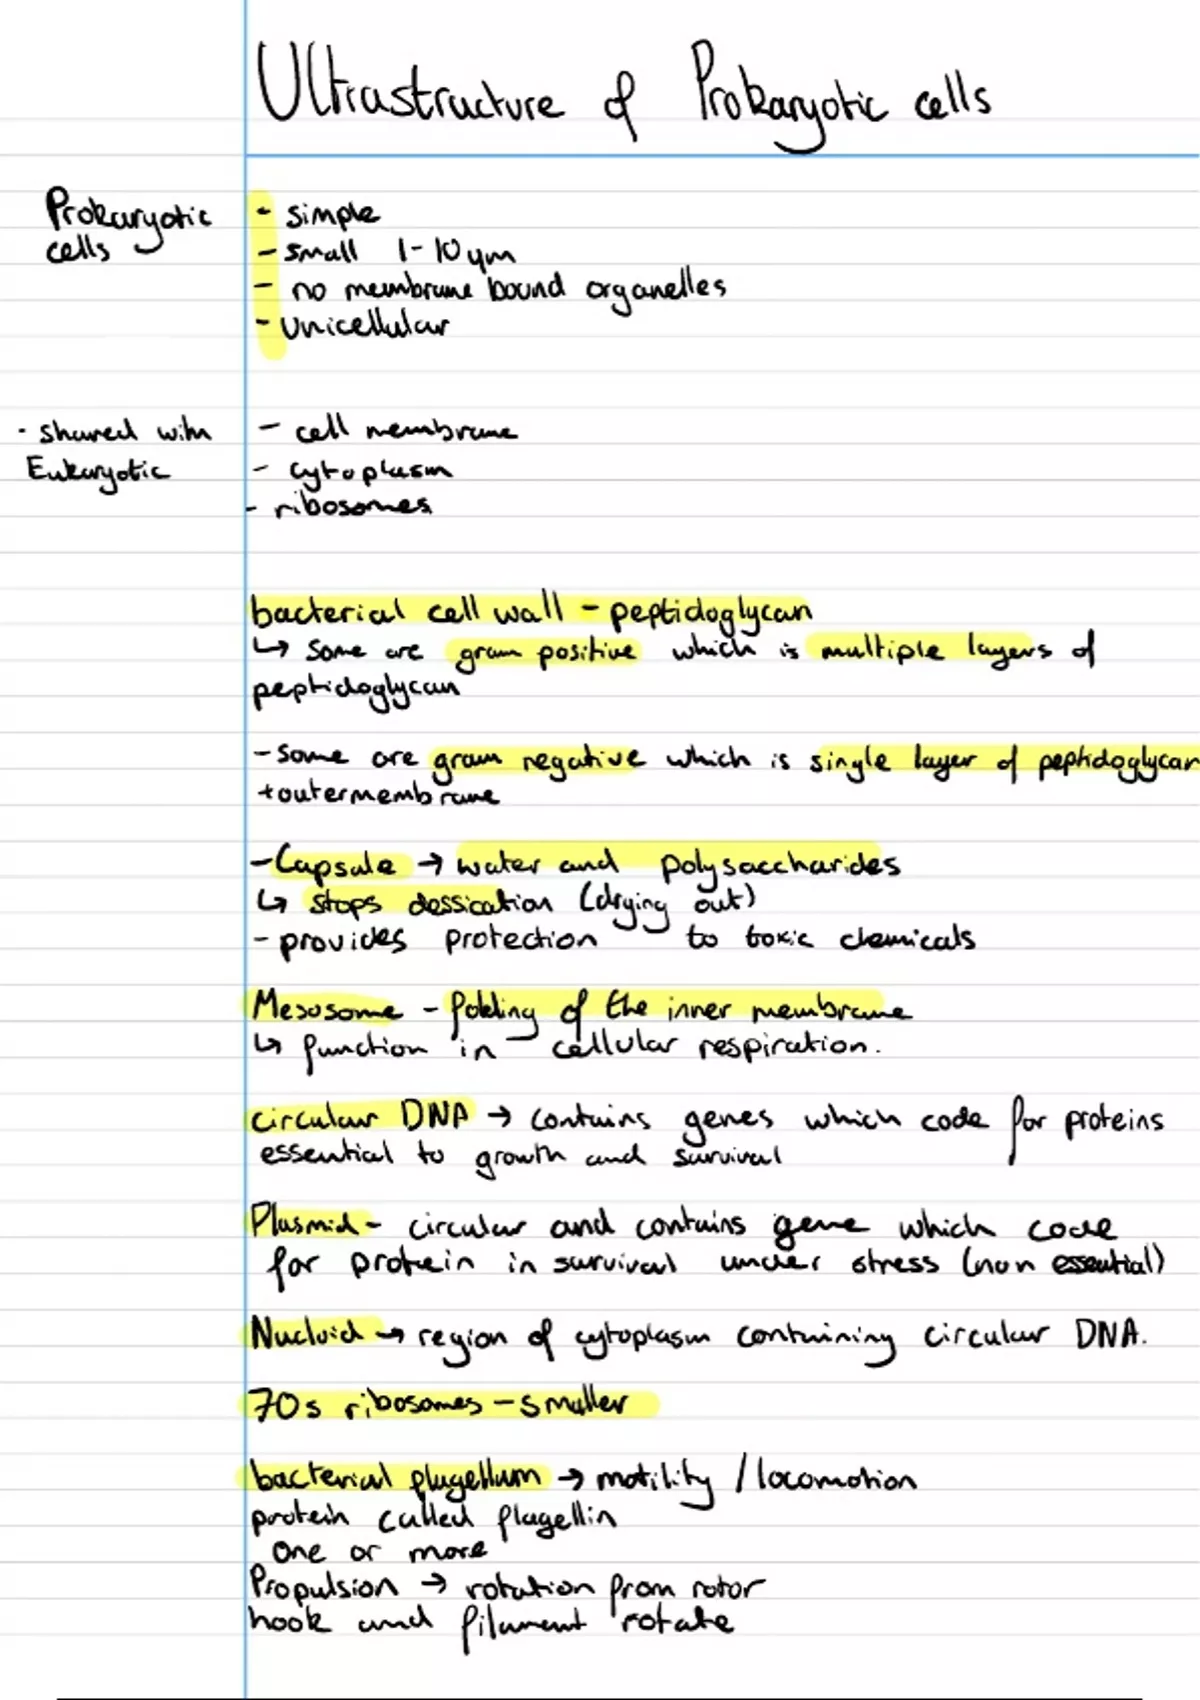 Ultrastructure of Prokaryotic cells
Prokaryotic
cells
- simple
- small 1-10 μm
- no membrane bound organelles
- unicellular
· shared with
Eukaryotic
- cell membrane
- cytoplasm
- ribosomes
bacterial cell wall - peptidoglycan
↳ some are gram positive which is multiple layers of
peptidoglycan
- some are gram negative which is single layer of peptidoglycan
+outermembrane
- Capsule → water and polysaccharides
↳ stops dessication (drying out)
- provides protection to toxic chemicals
Mesosome - folding of the inner membrane
↳ function in cellular respiration.
circular DNA → contains genes which code for proteins
essential to growth and survival
Plasmid - circular and contains gene which code
for protein in survival under stress (non essential)
Nucloid → region of cytoplasm containing circular DNA.
70s ribosomes - smaller
bacterial flagellum → motility / locomotion
protein called flagellin
one or more
Propulsion → rotation from rotor
hook and filament rotate